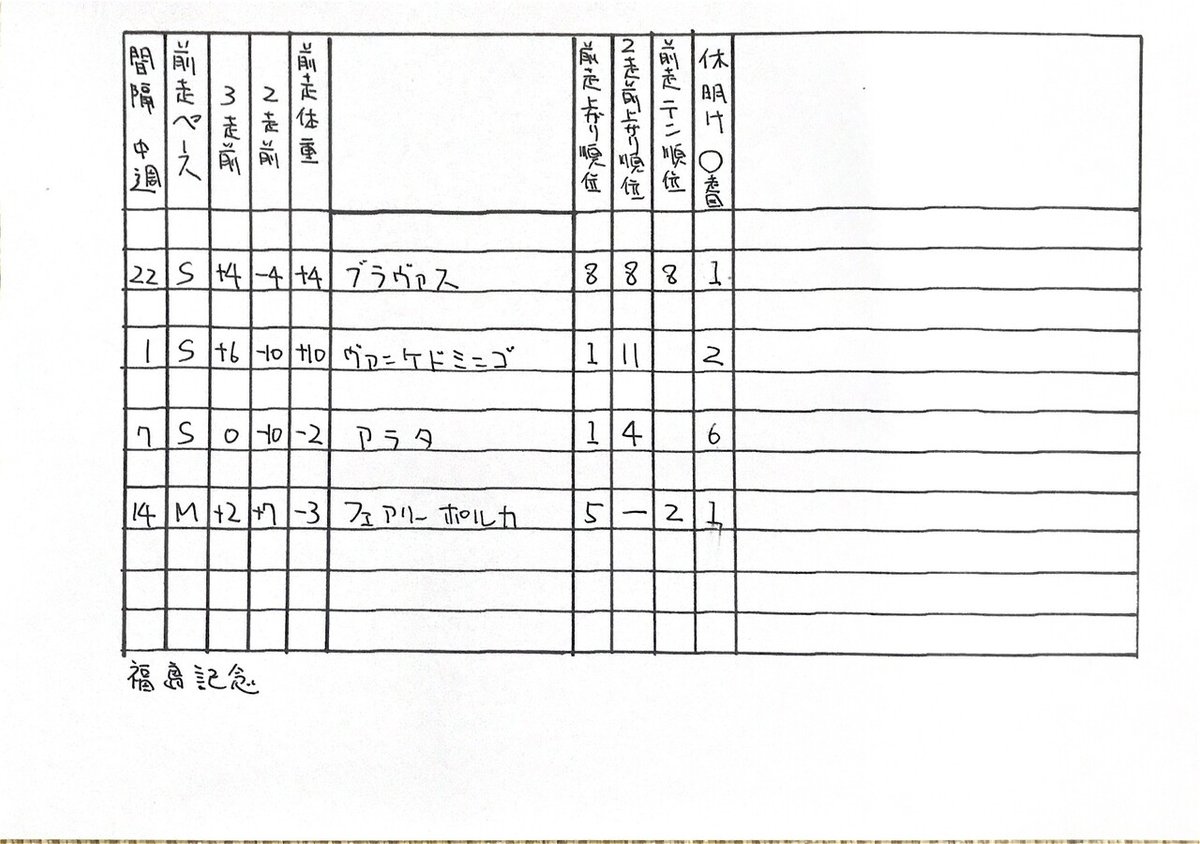 間隔 中週 前走ペース 3走前 2走前 前走体重 前走上がり順位 2走前上がり順位 前走テン順位 休明け○走目
22 S +4 -4 +4 ブラヴァス 8 8 8 1
1 S +6 -10 +10 ヴァンケドミンゴ 1 11 2
7 S 0 -10 -2 アラタ 1 4 6
14 M +2 +7 -3 フェアリーポルカ 5 ー 2 1
福島記念